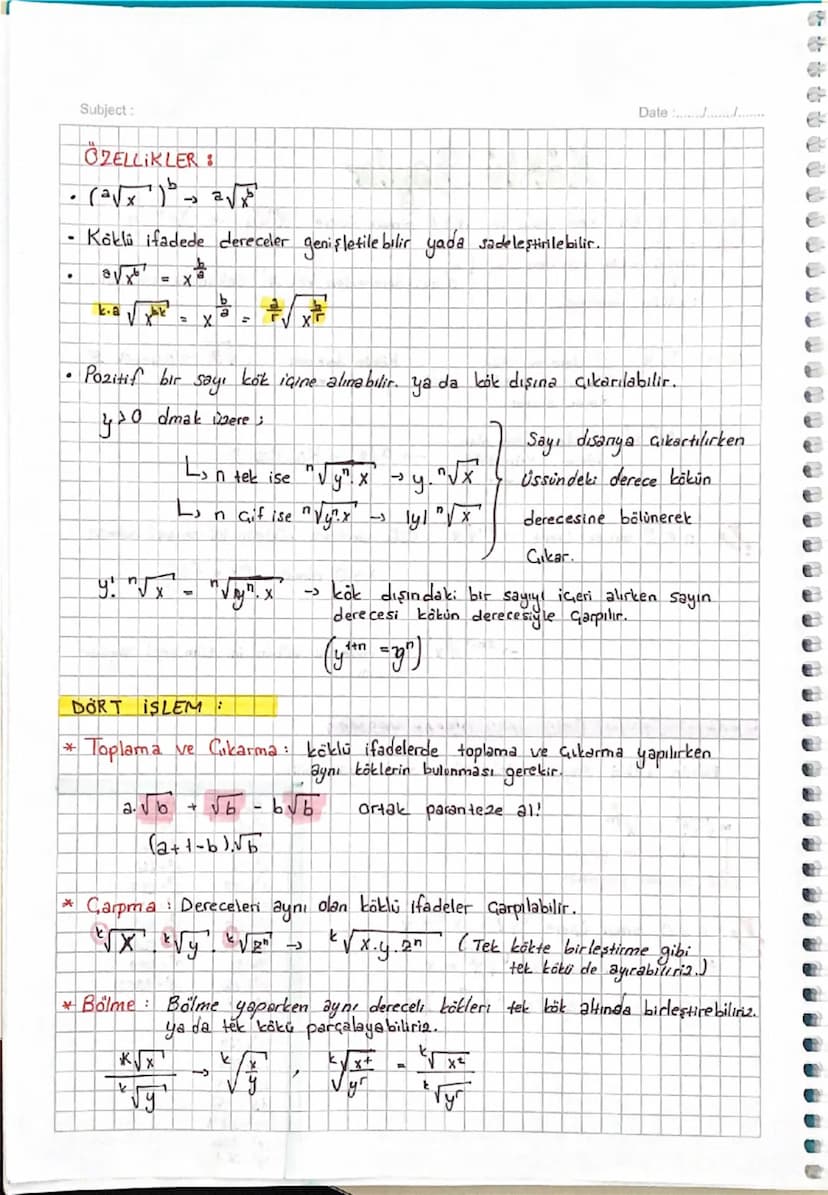 Subject :
Date :......./......./.......
ÖZELLİKLER :
• (ᵃ√x)ᵇ → ᵃ√xᵇ
- Köklü ifadede dereceler genişletilebilir yada sadeleştirilebilir.
• ᵃ√xᵇ = x^(b/a)
k.a√x^(bk) = x^(b/a) = (a/r)√x^(b/r)
• Pozitif bir sayı kök içine alınabilir. ya da kök dışına çıkarılabilir.
y>0 olmak üzere ;
↳ n tek ise ⁿ√yⁿ.x → y.ⁿ√x
↳ n çift ise ⁿ√yⁿ.x → |y| ⁿ√x
Sayı dışarıya çıkartılırken
üssündeki derece kökün
derecesine bölünerek
Çıkar.
y¹. ⁿ√x = ⁿ√yⁿ.x → kök dışındaki bir sayıyı içeri alırken sayın
derecesi kökün derecesiyle çarpılır.
(y^(1+n) = yⁿ)
DÖRT İŞLEM :
* Toplama ve Çıkarma : köklü ifadelerde toplama ve çıkarma yapılırken
aynı köklerin bulunması gerekir.
a.√b + √b - b√b ortak paranteze al!
(a+1-b).√b
* Çarpma : Dereceleri aynı olan köklü ifadeler çarpılabilir.
ᵏ√x . ᵏ√y . ᵏ√zⁿ → ᵏ√x.y.zⁿ (Tek kökte birleştirme gibi
tek kökü de ayırabiliriz.)
* Bölme : Bölme yaparken aynı dereceli kökleri tek kök altında birleştirebiliriz.
ya da tek kökü parçalayabiliriz.
ᵏ√x / ᵏ√y → ᵏ√(x/y) , ᵏ√(xᵗ/yʳ) = ᵏ√xᵗ / ᵏ√yʳ